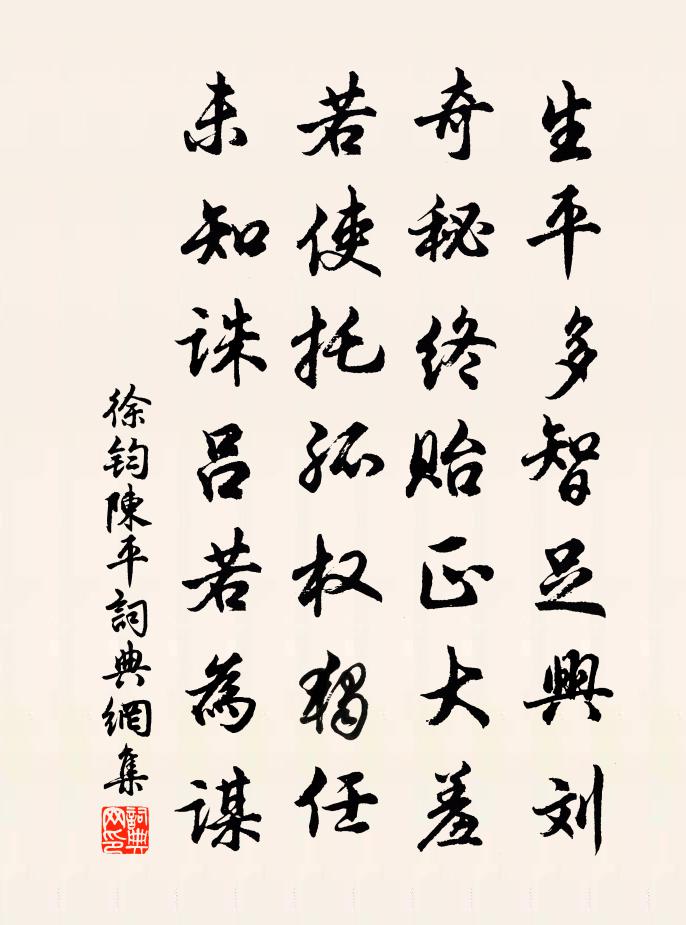 生平多智足興刘
奇秘终贻正大羞
若使托孤权獨任
未知诛吕若為谋
徐鈞陳平詞典網集
詞典网印